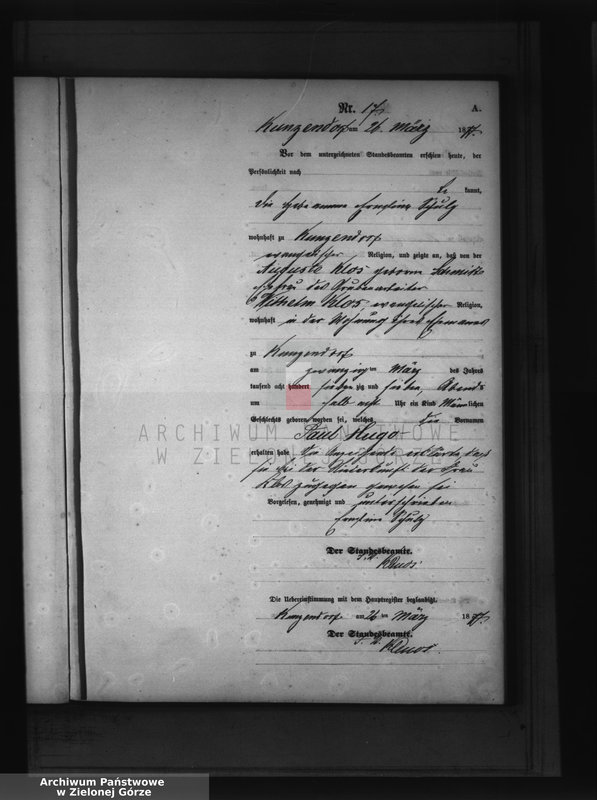 Nr. 17.
A.
Kunzendorf am 26. März 1877.
Vor dem unterzeichneten Standesbeamten erschien heute, der
Persönlichkeit nach
be kannt,
die Hebeamme Ernstine Schulz
wohnhaft zu Kunzendorf
evangelischer Religion, und zeigte an, daß von der
Auguste Klos geborne
Ehefrau des Grubenarbeiter
Wilhelm Klos evangelischer Religion,
wohnhaft in der Wohnung ihres Ehemanes
zu Kunzendorf
am zwanzigten März des Jahres
tausend acht hundert sieben zig und sieben, Abends
um halb acht Uhr ein Kind Männlichen
Geschlechts geboren worden sei, welches die Vornamen
Paul Hugo
erhalten habe. Die Anzeigende erklärte, daß
sie bei der Niederkunft der Frau
Klos zugegen gewesen sei
Vorgelesen, genehmigt und unterschrieben
Ernstine Schulz
Der Standesbeamte.
Die Uebereinstimmung mit dem Hauptregister beglaubigt.
Kunzendorf am 26 ten März 1877.
Der Standesbeamte.
ARCHIWUM PAŃSTWOWE
W ZIELONEJ GÓRZE
Archiwum Państwowe
w Zielonej Górze